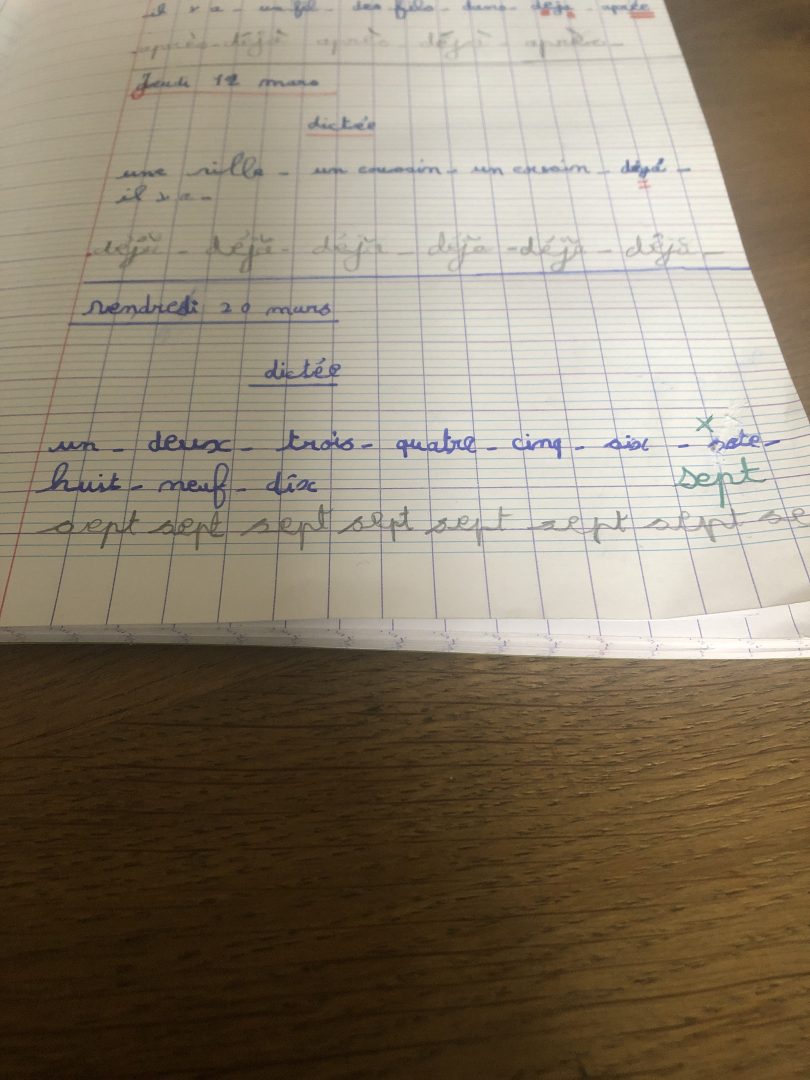 il y a - un fil - des fils - dans - déjà - après
après - déjà après - déjà - après -
Jeudi 12 mars
dictée
une ville - un cousin - un cousin - déjà -
il y a -
déjà - déjà - déjà - déjà - déjà - déjà -
vendredi 20 mars
dictée
x
un - deux - trois - quatre - cinq - six - sate -
huit - neuf - dix sept
sept sept sept sept sept sept sept se